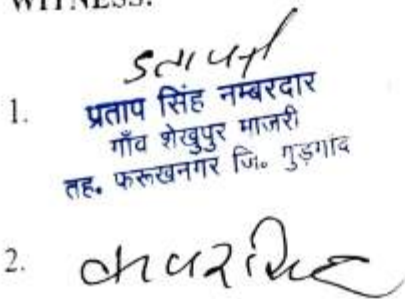 WITNESS:
1.
प्रताप सिंह नम्बरदार
गाँव शेखुपुर माजरी
तह. फरूखनगर जि. गुड़गांव
2.